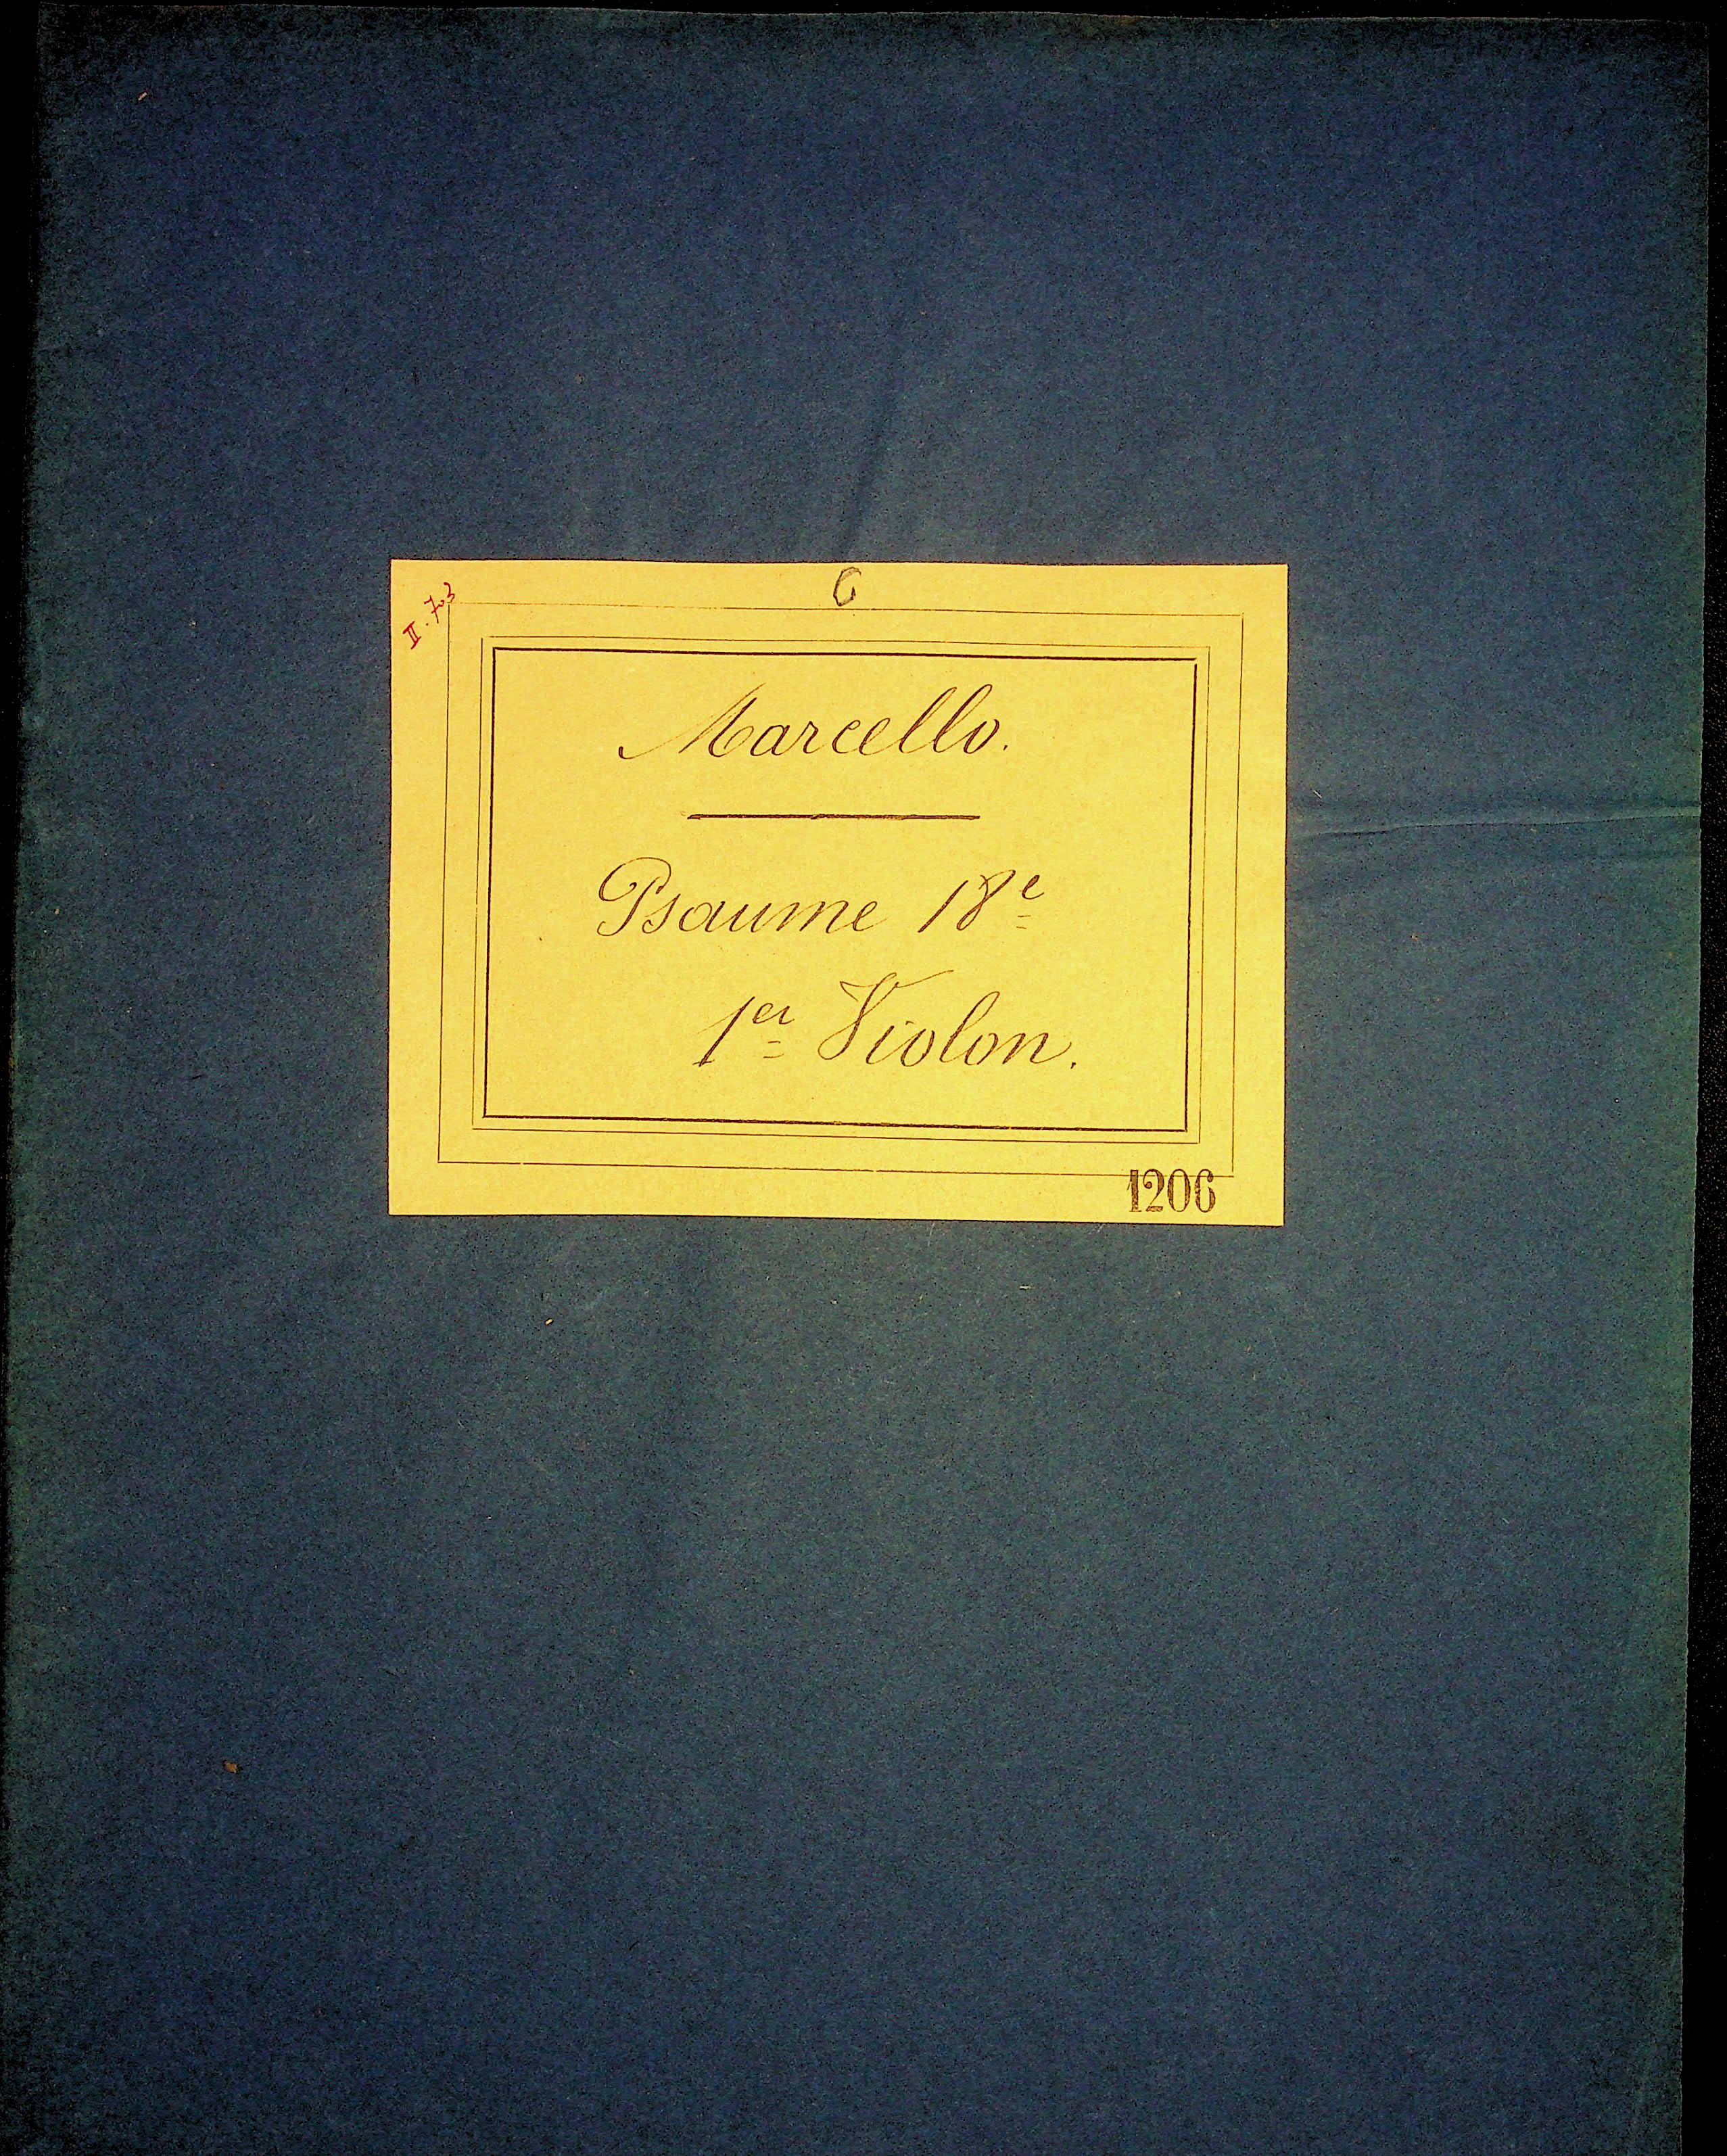 II.703
C
Marcello.
Psaume 18e
1er Violon.
1206